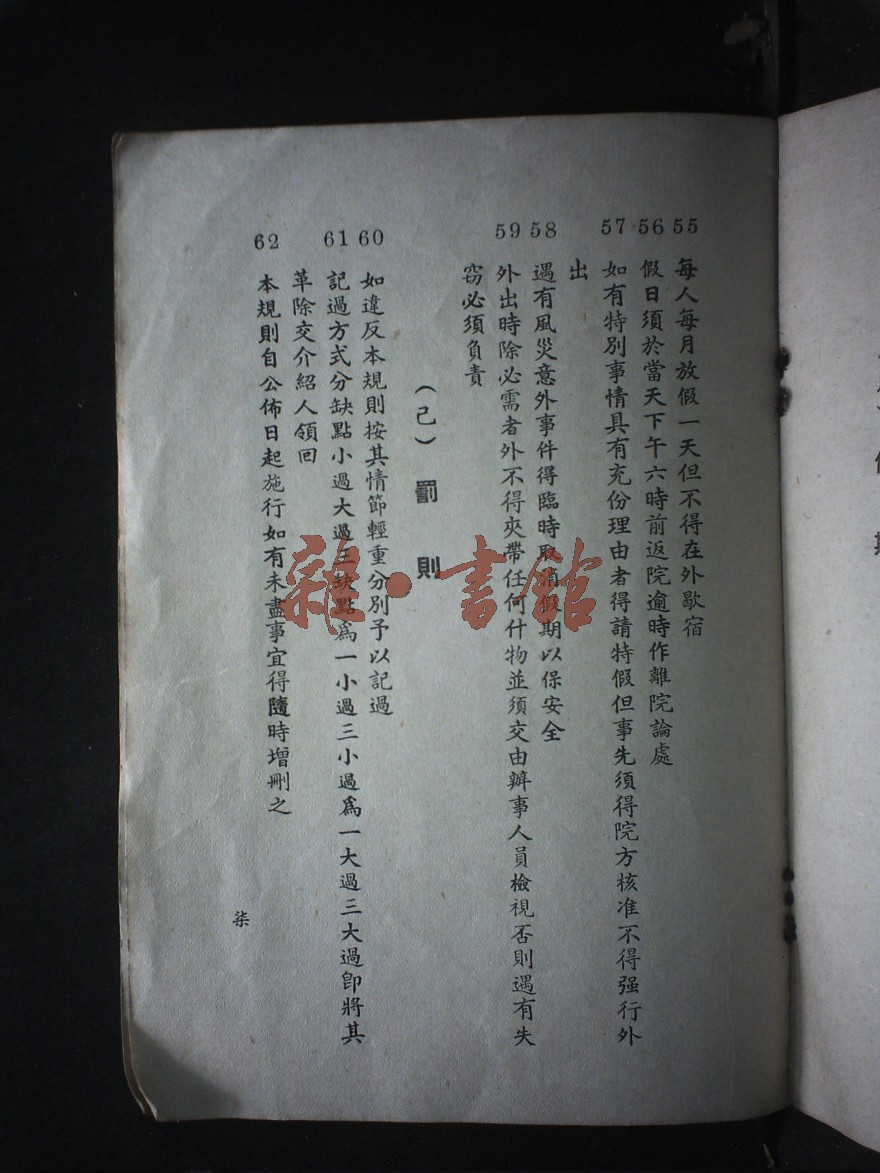 55 每人每月放假一天但不得在外歇宿
56 假日須於當天下午六時前返院逾時作離院論處
57 如有特別事情具有充份理由者得請特假但事先須得院方核准不得强行外
出
58 遇有風災意外事件得臨時取消假期以保安全
59 外出時除必需者外不得夾帶任何什物並須交由辦事人員檢視否則遇有失
窃必須負責
（己）罰則
60 如違反本規則按其情節輕重分別予以記過
61 記過方式分缺點小過大過三缺點爲一小過三小過爲一大過三大過卽將其
革除交介紹人領回
62 本規則自公佈日起施行如有未盡事宜得隨時增刪之
柒
雜·書館